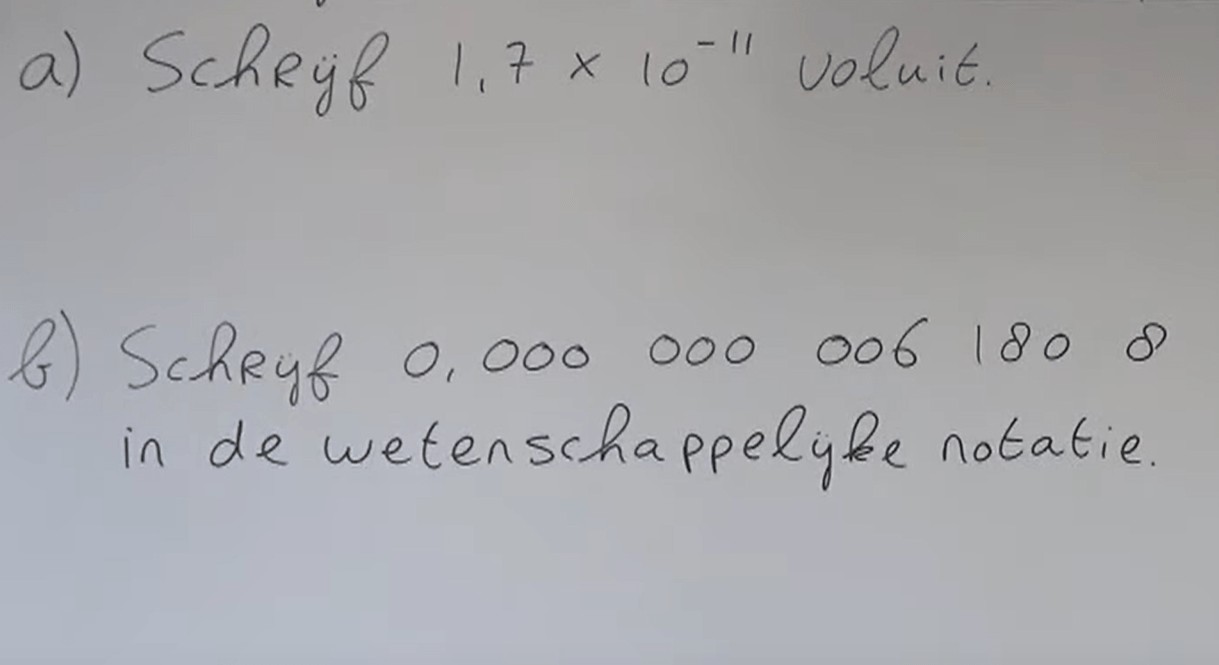 a) Schrijf 1,7 × 10⁻¹¹ voluit.
b) Schrijf 0,000 000 006 180 8
in de wetenschappelijke notatie.